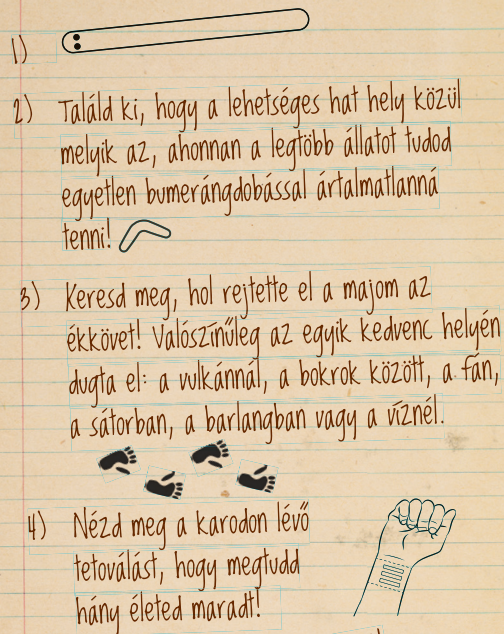 1)
2) Találd ki, hogy a lehetséges hat hely közül
melyik az, ahonnan a legtöbb állatot tudod
egyetlen bumerángdobással ártalmatlanná
tenni!
3) Keresd meg, hol rejtette el a majom az
ékkövet! Valószínűleg az egyik kedvenc helyén
dugta el: a vulkánnál, a bokrok között, a fán,
a sátorban, a barlangban vagy a víznél.
4) Nézd meg a karodon lévő
tetoválást, hogy megtudd
hány életed maradt!